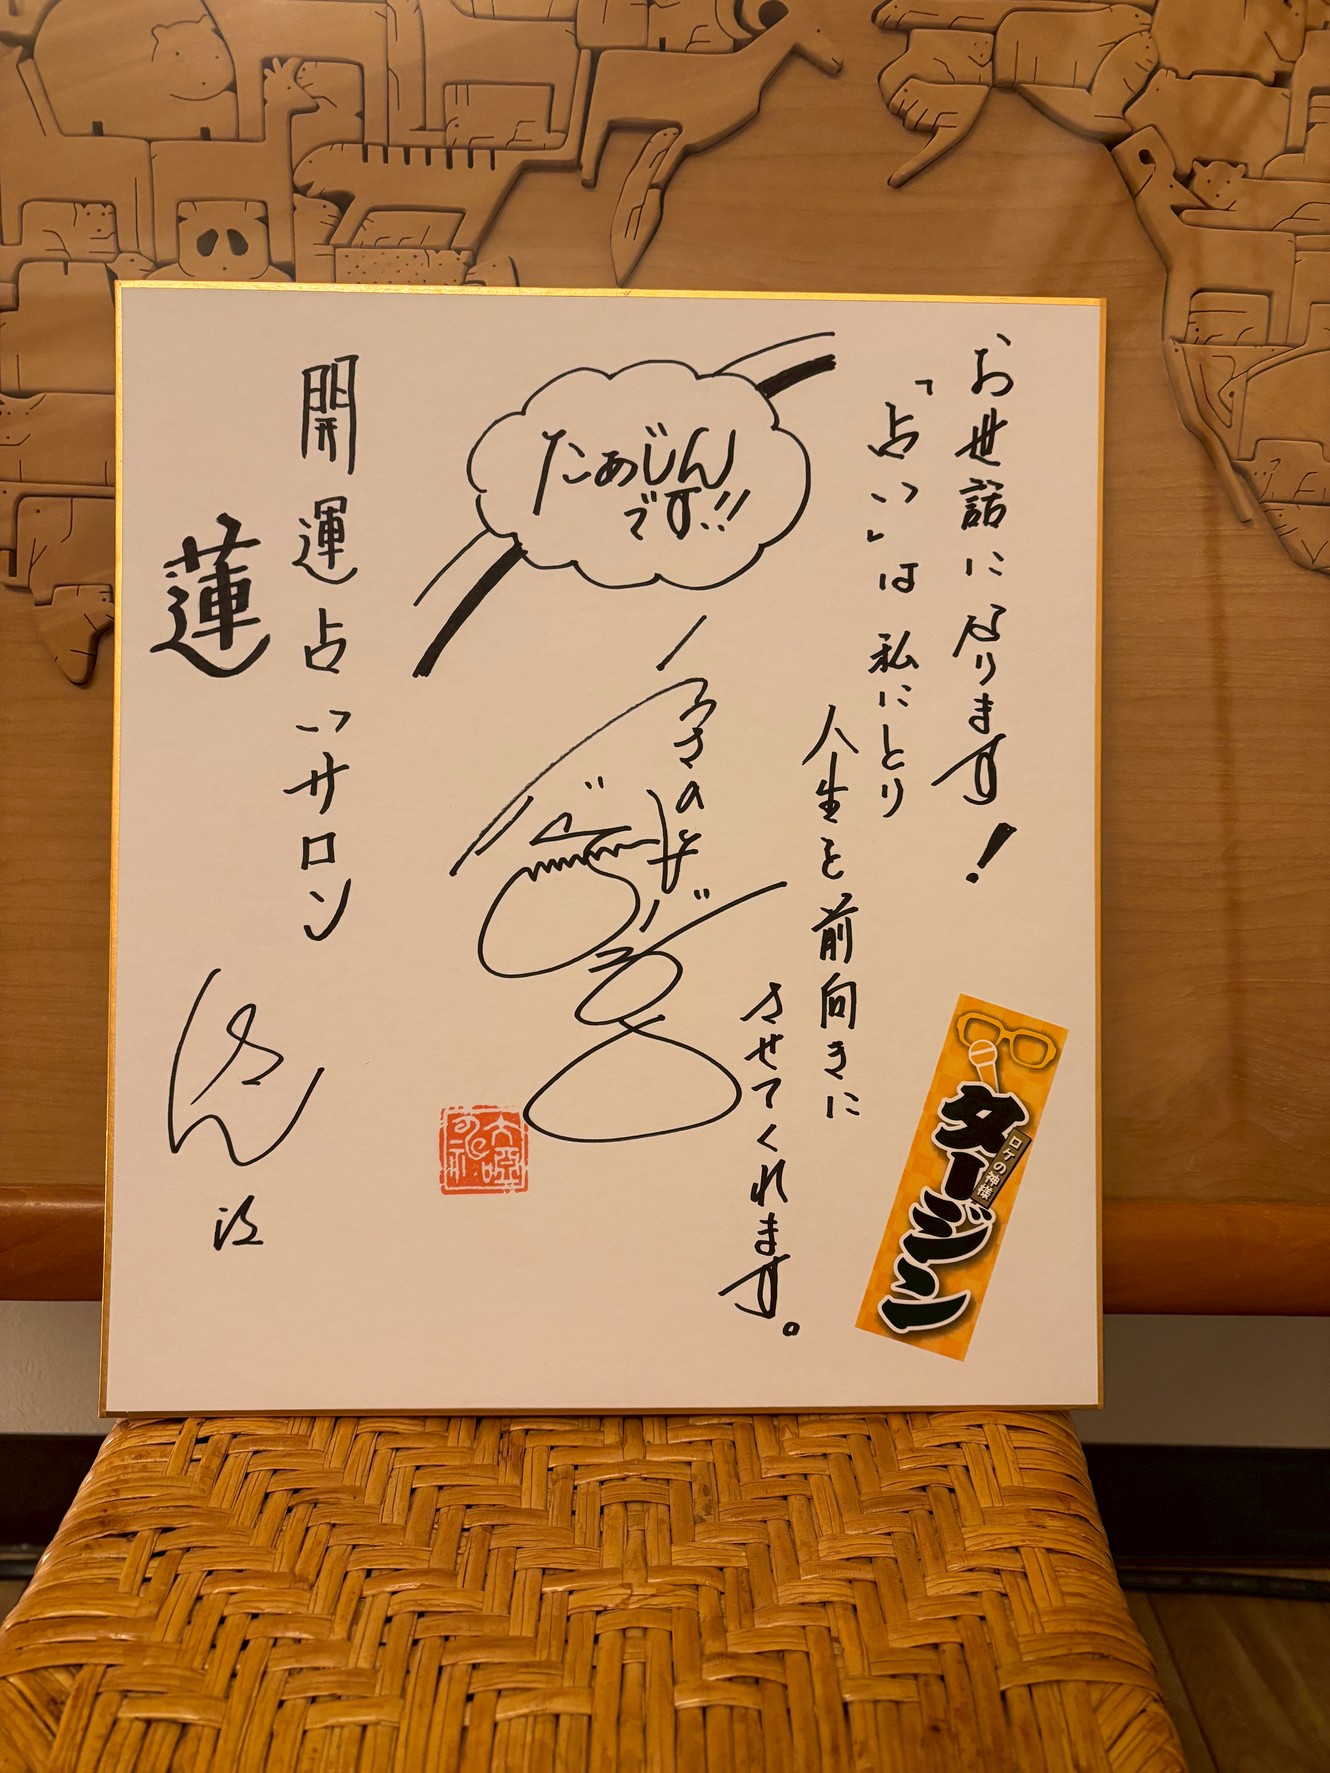 お世話になります!
「占い」は私にとり
人生を前向きに
させてくれます。
たぁじんです!!
開運占いサロン
蓮
さん江
ロケの神様
タージン